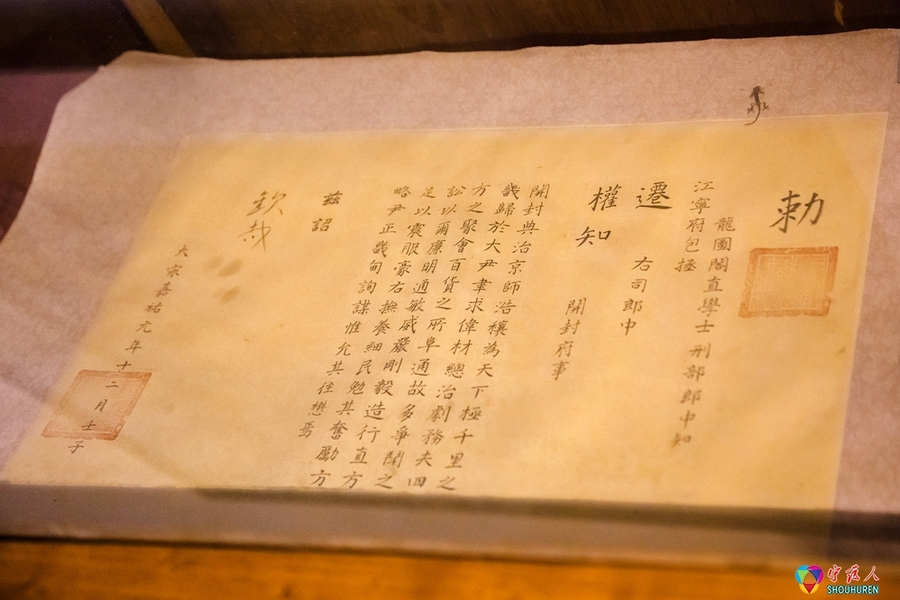 勅
龍圖閣直學士刑部郎中知
江寧府包拯
遷
右司郎中
權知
開封府事
開封典治京師浩穰為天下極千里之
畿歸於大尹聿求偉材總治劇務夫四
方之聚會百貨之所阜通故多爭鬪之
訟以爾廉明通敏威嚴剛毅造行直方
足以震服豪右撫養細民勉其奮勵方
略尹正畿甸詢謀惟允其往懋焉
茲詔
欽哉
大宋嘉祐元年十二月壬子
守护人
SHOUHUREN